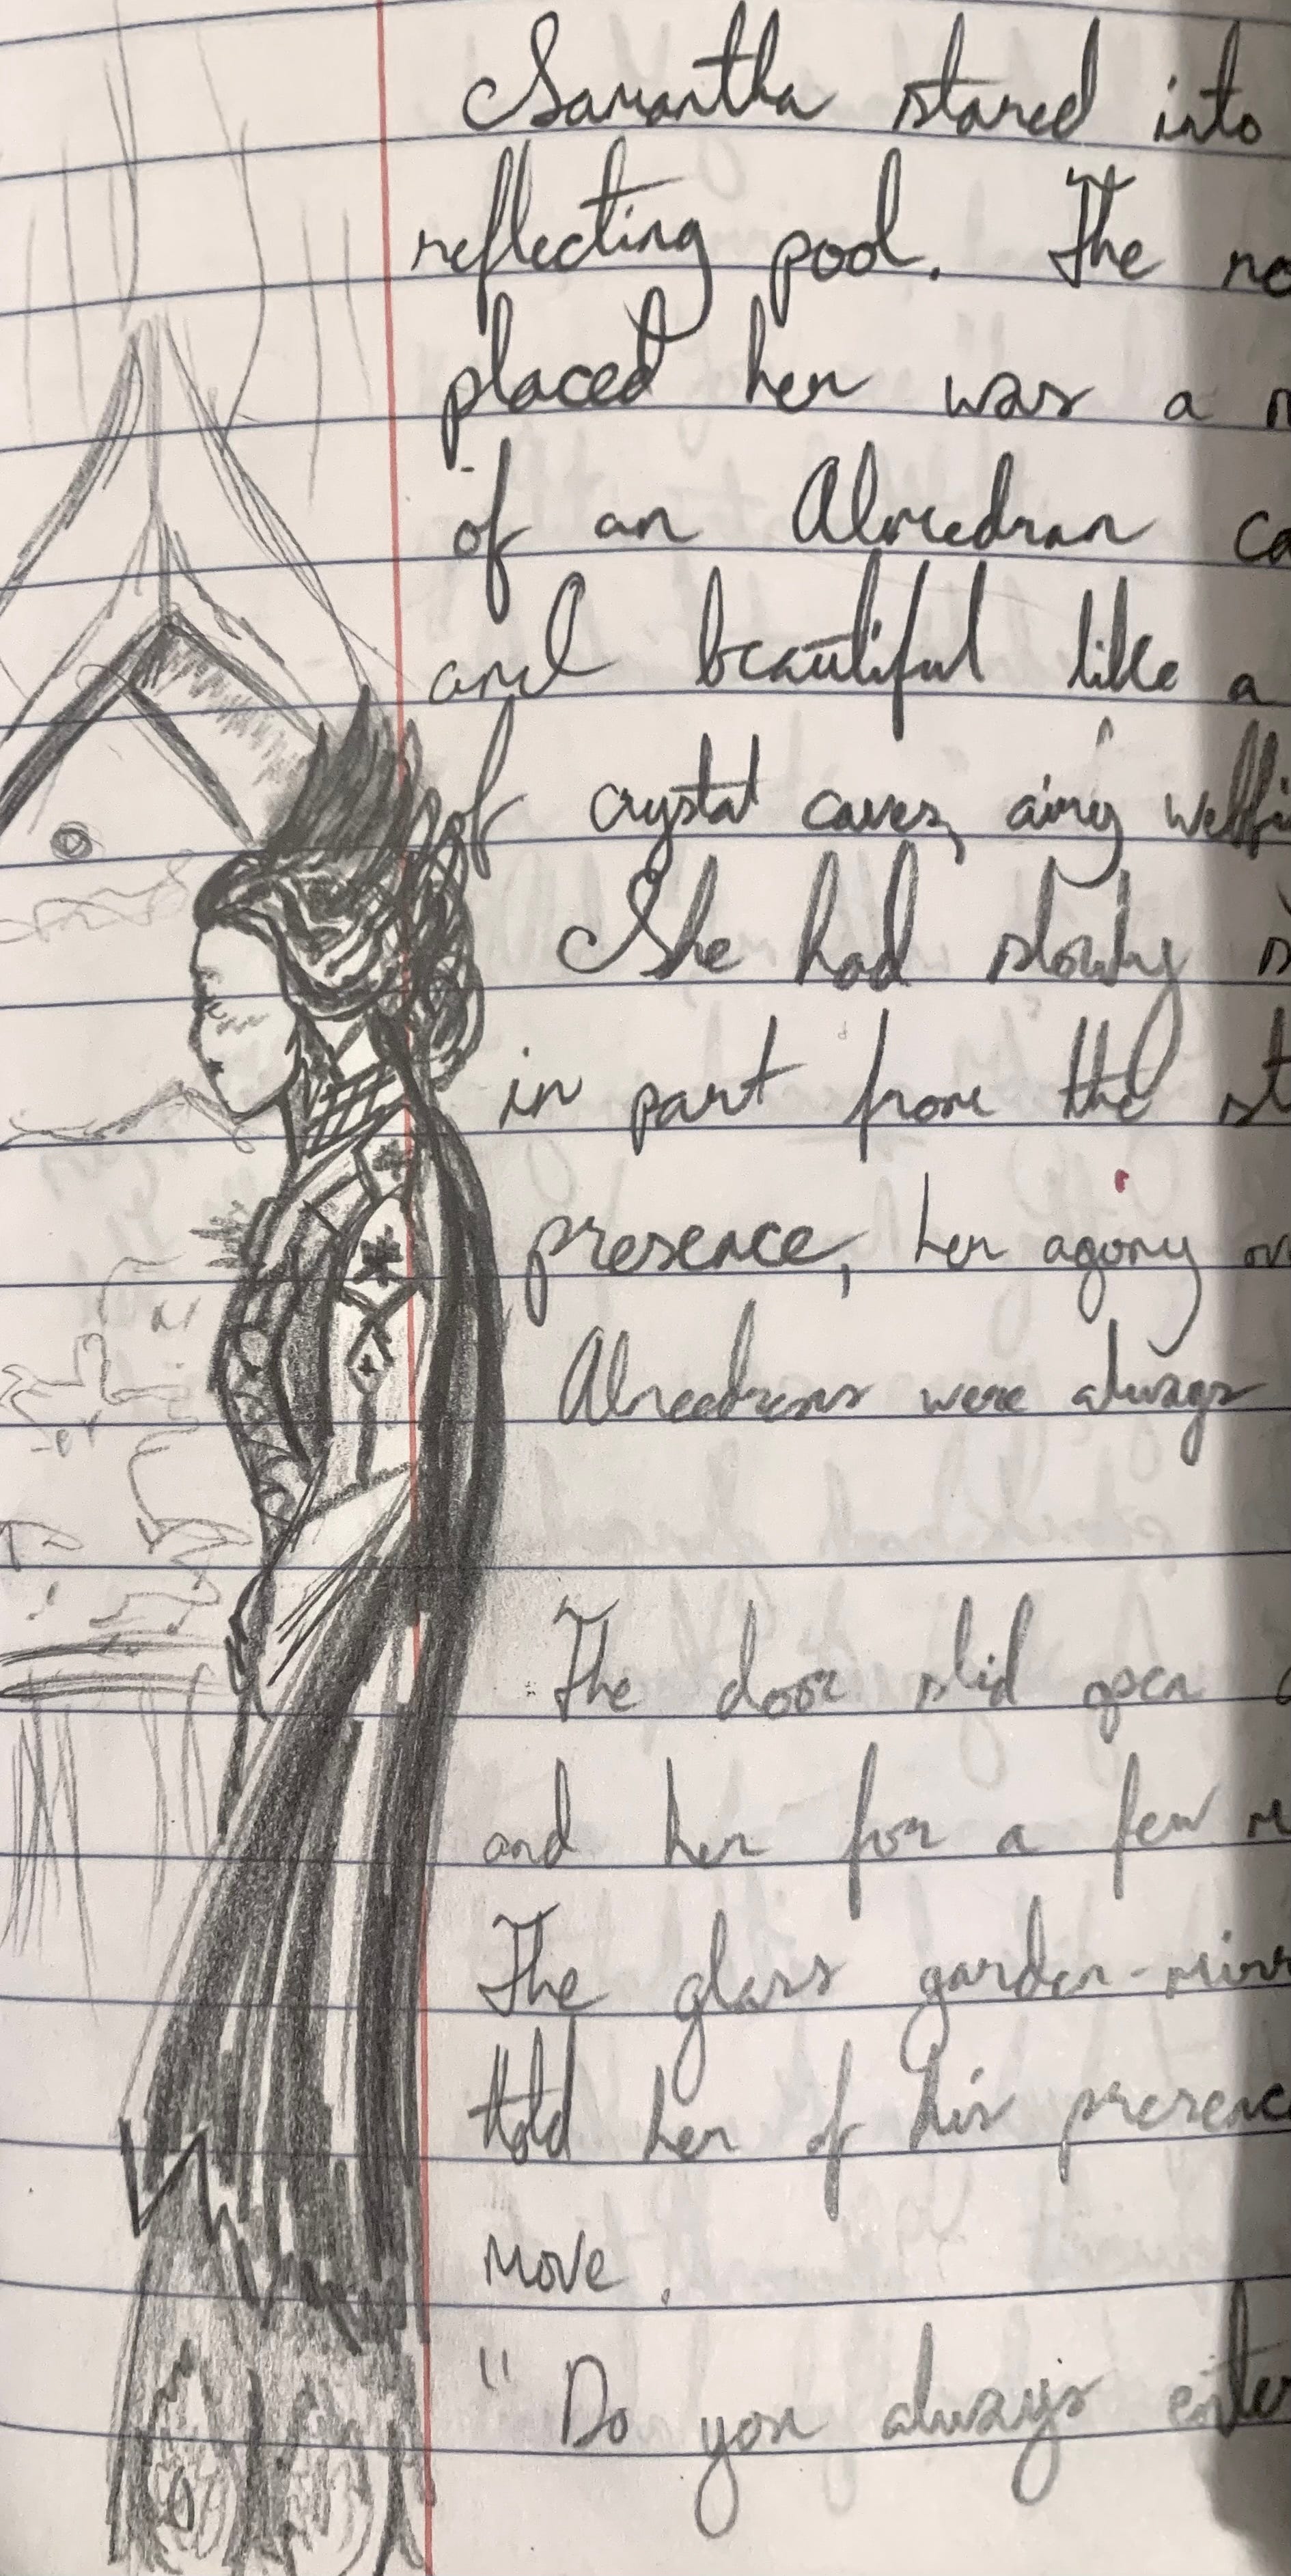 Samantha stared into
reflecting pool. The
placed her was a
of an Alreedran
and beautiful like a
of crystal caves, airy
She had slowly
in part from the
presence, her agony
Alreedrans were always
The door slid open
and her for a few
The glass garden-
told her of his presence
move.
"Do you always enter